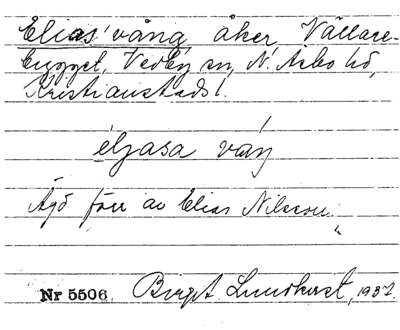 Elias' vång, åker, Vällare-
bygget, Vedby sn, N. Åsbo hd,
Kristianstads l.
éljasa váŋ
Ägd förr av Elias Nilsson.
Nr 5506. Birgit Lundkvist, 1932.